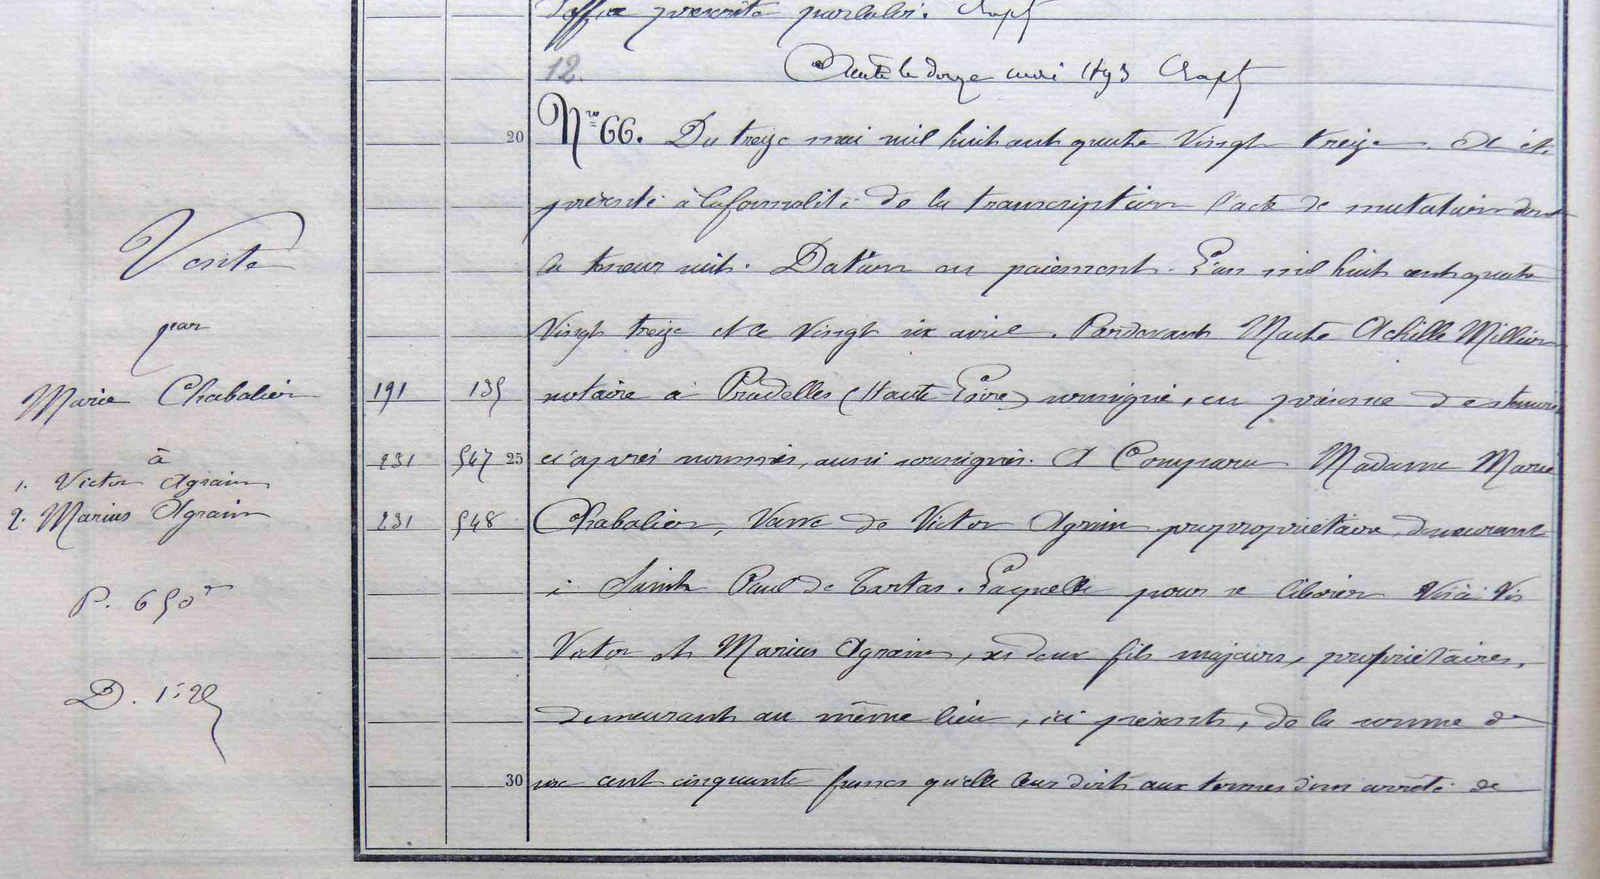 prescrite par la loi. Chapt
12. Arrêté le douze mai 1893 Chapt
20 Nro 66. Du treize mai mil huit cent quatre vingt treize. A été
présenté à la formalité de la transcription l'acte de mutation dont
la teneur suit. Dation en paiement. L'an mil huit cent quatre
Vente
vingt treize et le vingt six avril. Pardevant Maître Achille Millien
par
Marie Chabalier 191 135 notaire à Pradelles (Haute Loire) soussigné, en présence des témoins
à
231 547 25 ci après nommés, aussi soussignés. A Comparu Madame Marie
1. Victor Agrain
2. Marius Agrain 231 548 Chabalier, Veuve de Victor Agrain propropriétaire, demeurant
à Saint Paul de Tartas. Laquelle pour se libérer Vis à Vis
P. 650 f
Victor et Marius Agrain, ses deux fils majeurs, propriétaires,
D. 1 f 25
demeurant au même lieu, ici présents, de la somme de
30 six cent cinquante francs qu'elle leur doit aux termes d'un arrêté de